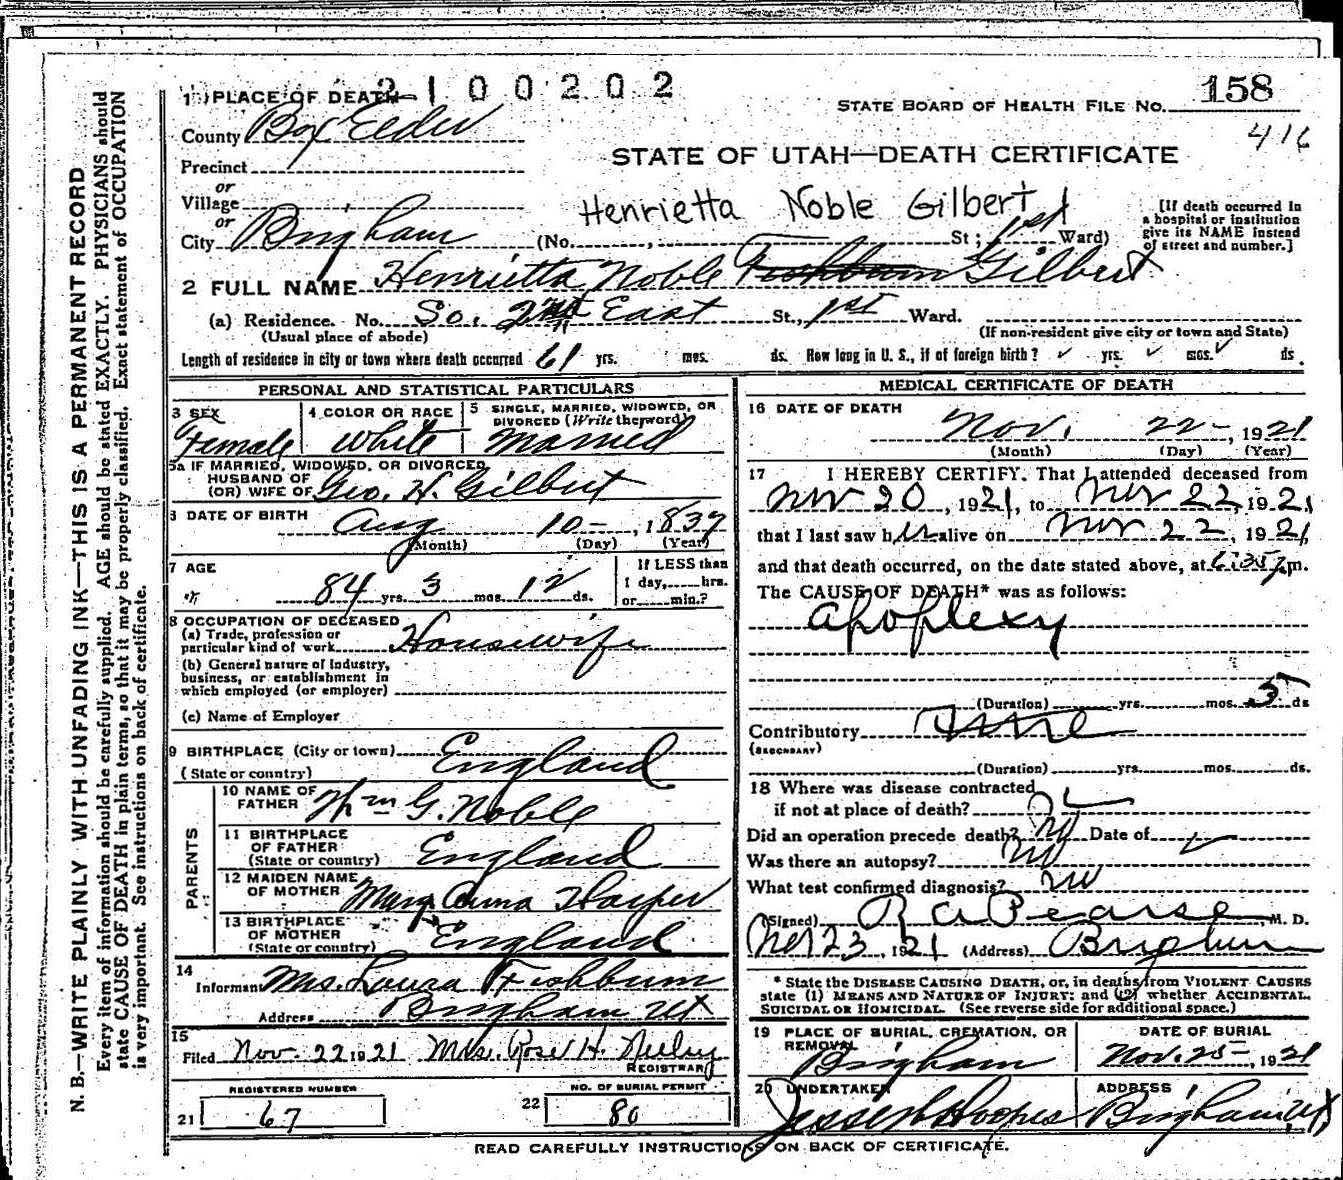 N. B.—WRITE PLAINLY WITH UNFADING INK—THIS IS A PERMANENT RECORD
Every item of information should be carefully supplied. AGE should be stated EXACTLY. PHYSICIANS should
state CAUSE OF DEATH in plain terms, so that it may be properly classified. Exact statement of OCCUPATION
is very important. See instructions on back of certificate.
2100202
1 PLACE OF DEATH
STATE BOARD OF HEALTH FILE NO. 158
416
County Box Elder
Precinct
STATE OF UTAH—DEATH CERTIFICATE
or
Village
or
Henrietta Noble Gilbert
City Brigham (No. , St; 1st Ward)
[If death occurred in
a hospital or institution
give its NAME instead
of street and number.]
2 FULL NAME Henrietta Noble Fishburn Gilbert
(a) Residence. No. So. 2nd East St., 1st Ward.
(Usual place of abode) (If non-resident give city or town and State)
Length of residence in city or town where death occurred 61 yrs. mos. ds. How long in U. S., if of foreign birth? yrs. mos. ds.
PERSONAL AND STATISTICAL PARTICULARS
3 SEX Female
4 COLOR OR RACE White
5 SINGLE, MARRIED, WIDOWED, OR
DIVORCED (Write the word) Married
5a IF MARRIED, WIDOWED, OR DIVORCED
HUSBAND OF
(OR) WIFE OF Geo. H. Gilbert
6 DATE OF BIRTH Aug 10-, 1837
(Month) (Day) (Year)
7 AGE 84 yrs. 3 mos. 12 ds.
If LESS than
1 day, hrs.
or min.?
8 OCCUPATION OF DECEASED
(a) Trade, profession or
particular kind of work Housewife
(b) General nature of Industry,
business, or establishment in
which employed (or employer)
(c) Name of Employer
9 BIRTHPLACE (City or town) England
(State or country)
PARENTS
10 NAME OF
FATHER Wm G. Noble
11 BIRTHPLACE
OF FATHER England
(State or country)
12 MAIDEN NAME
OF MOTHER Mary Anna Harper
13 BIRTHPLACE
OF MOTHER England
(State or country)
14
Informant Mrs. Laura Fishburn
Address Brigham Ut
15
Filed Nov. 22 1921 Mrs. Rose H. Neeley
REGISTRAR
REGISTERED NUMBER
21 67
NO. OF BURIAL PERMIT
22 80
MEDICAL CERTIFICATE OF DEATH
16 DATE OF DEATH
Nov. 22-, 1921
(Month) (Day) (Year)
17 I HEREBY CERTIFY. That I attended deceased from
Nov 20, 1921, to Nov 22, 1921
that I last saw her alive on Nov 22, 1921
and that death occurred, on the date stated above, at 6:35 p.m.
The CAUSE OF DEATH* was as follows:
apoplexy
(Duration) yrs. mos. 3 ds
Contributory
(SECONDARY)
(Duration) yrs. mos. ds.
18 Where was disease contracted
if not at place of death?
Did an operation precede death? no Date of
Was there an autopsy? no
What test confirmed diagnosis? no
(Signed) R A Pearse M. D.
Nov 23, 1921 (Address) Brigham
* State the DISEASE CAUSING DEATH, or, in deaths from VIOLENT CAUSES
state (1) MEANS AND NATURE OF INJURY; and (2) whether ACCIDENTAL.
SUICIDAL OR HOMICIDAL. (See reverse side for additional space.)
19 PLACE OF BURIAL, CREMATION, OR
REMOVAL Brigham
DATE OF BURIAL
Nov. 25-, 1921
20 UNDERTAKER
ADDRESS
Brigham Ut
READ CAREFULLY INSTRUCTIONS ON BACK OF CERTIFICATE.